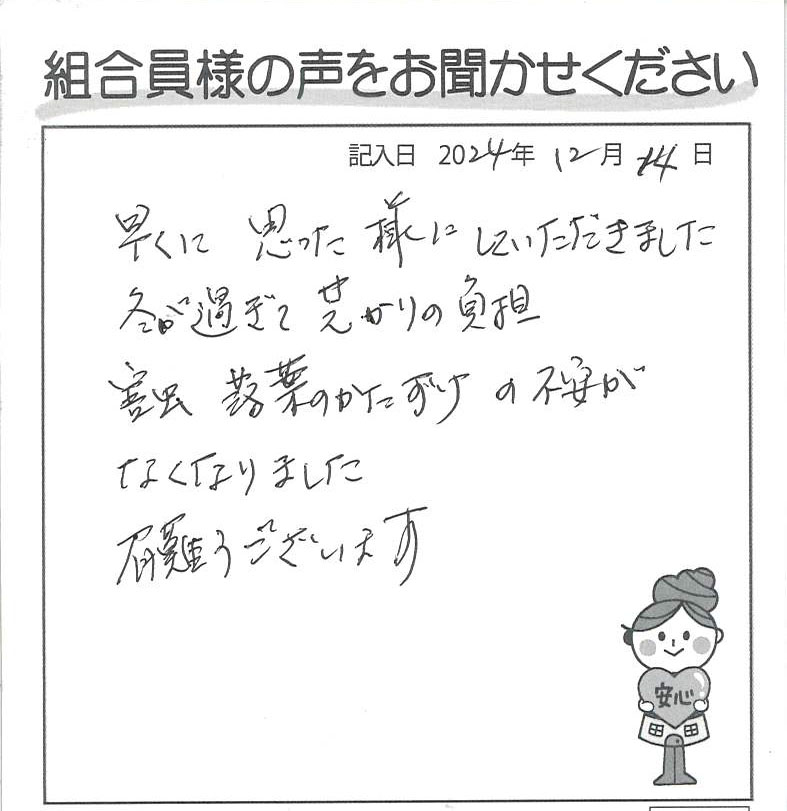 組合員様の声をお聞かせください
記入日 2024年 12月 14日
早くに 思った 様に していただきました
冬が過ぎて 草かりの負担
害虫 落葉のかたずけ の不安が
なくなりました
有難うございます
安心